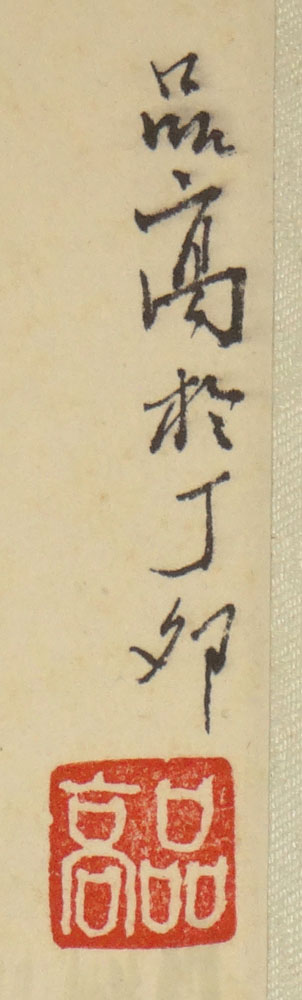 品高於丁卯
品高